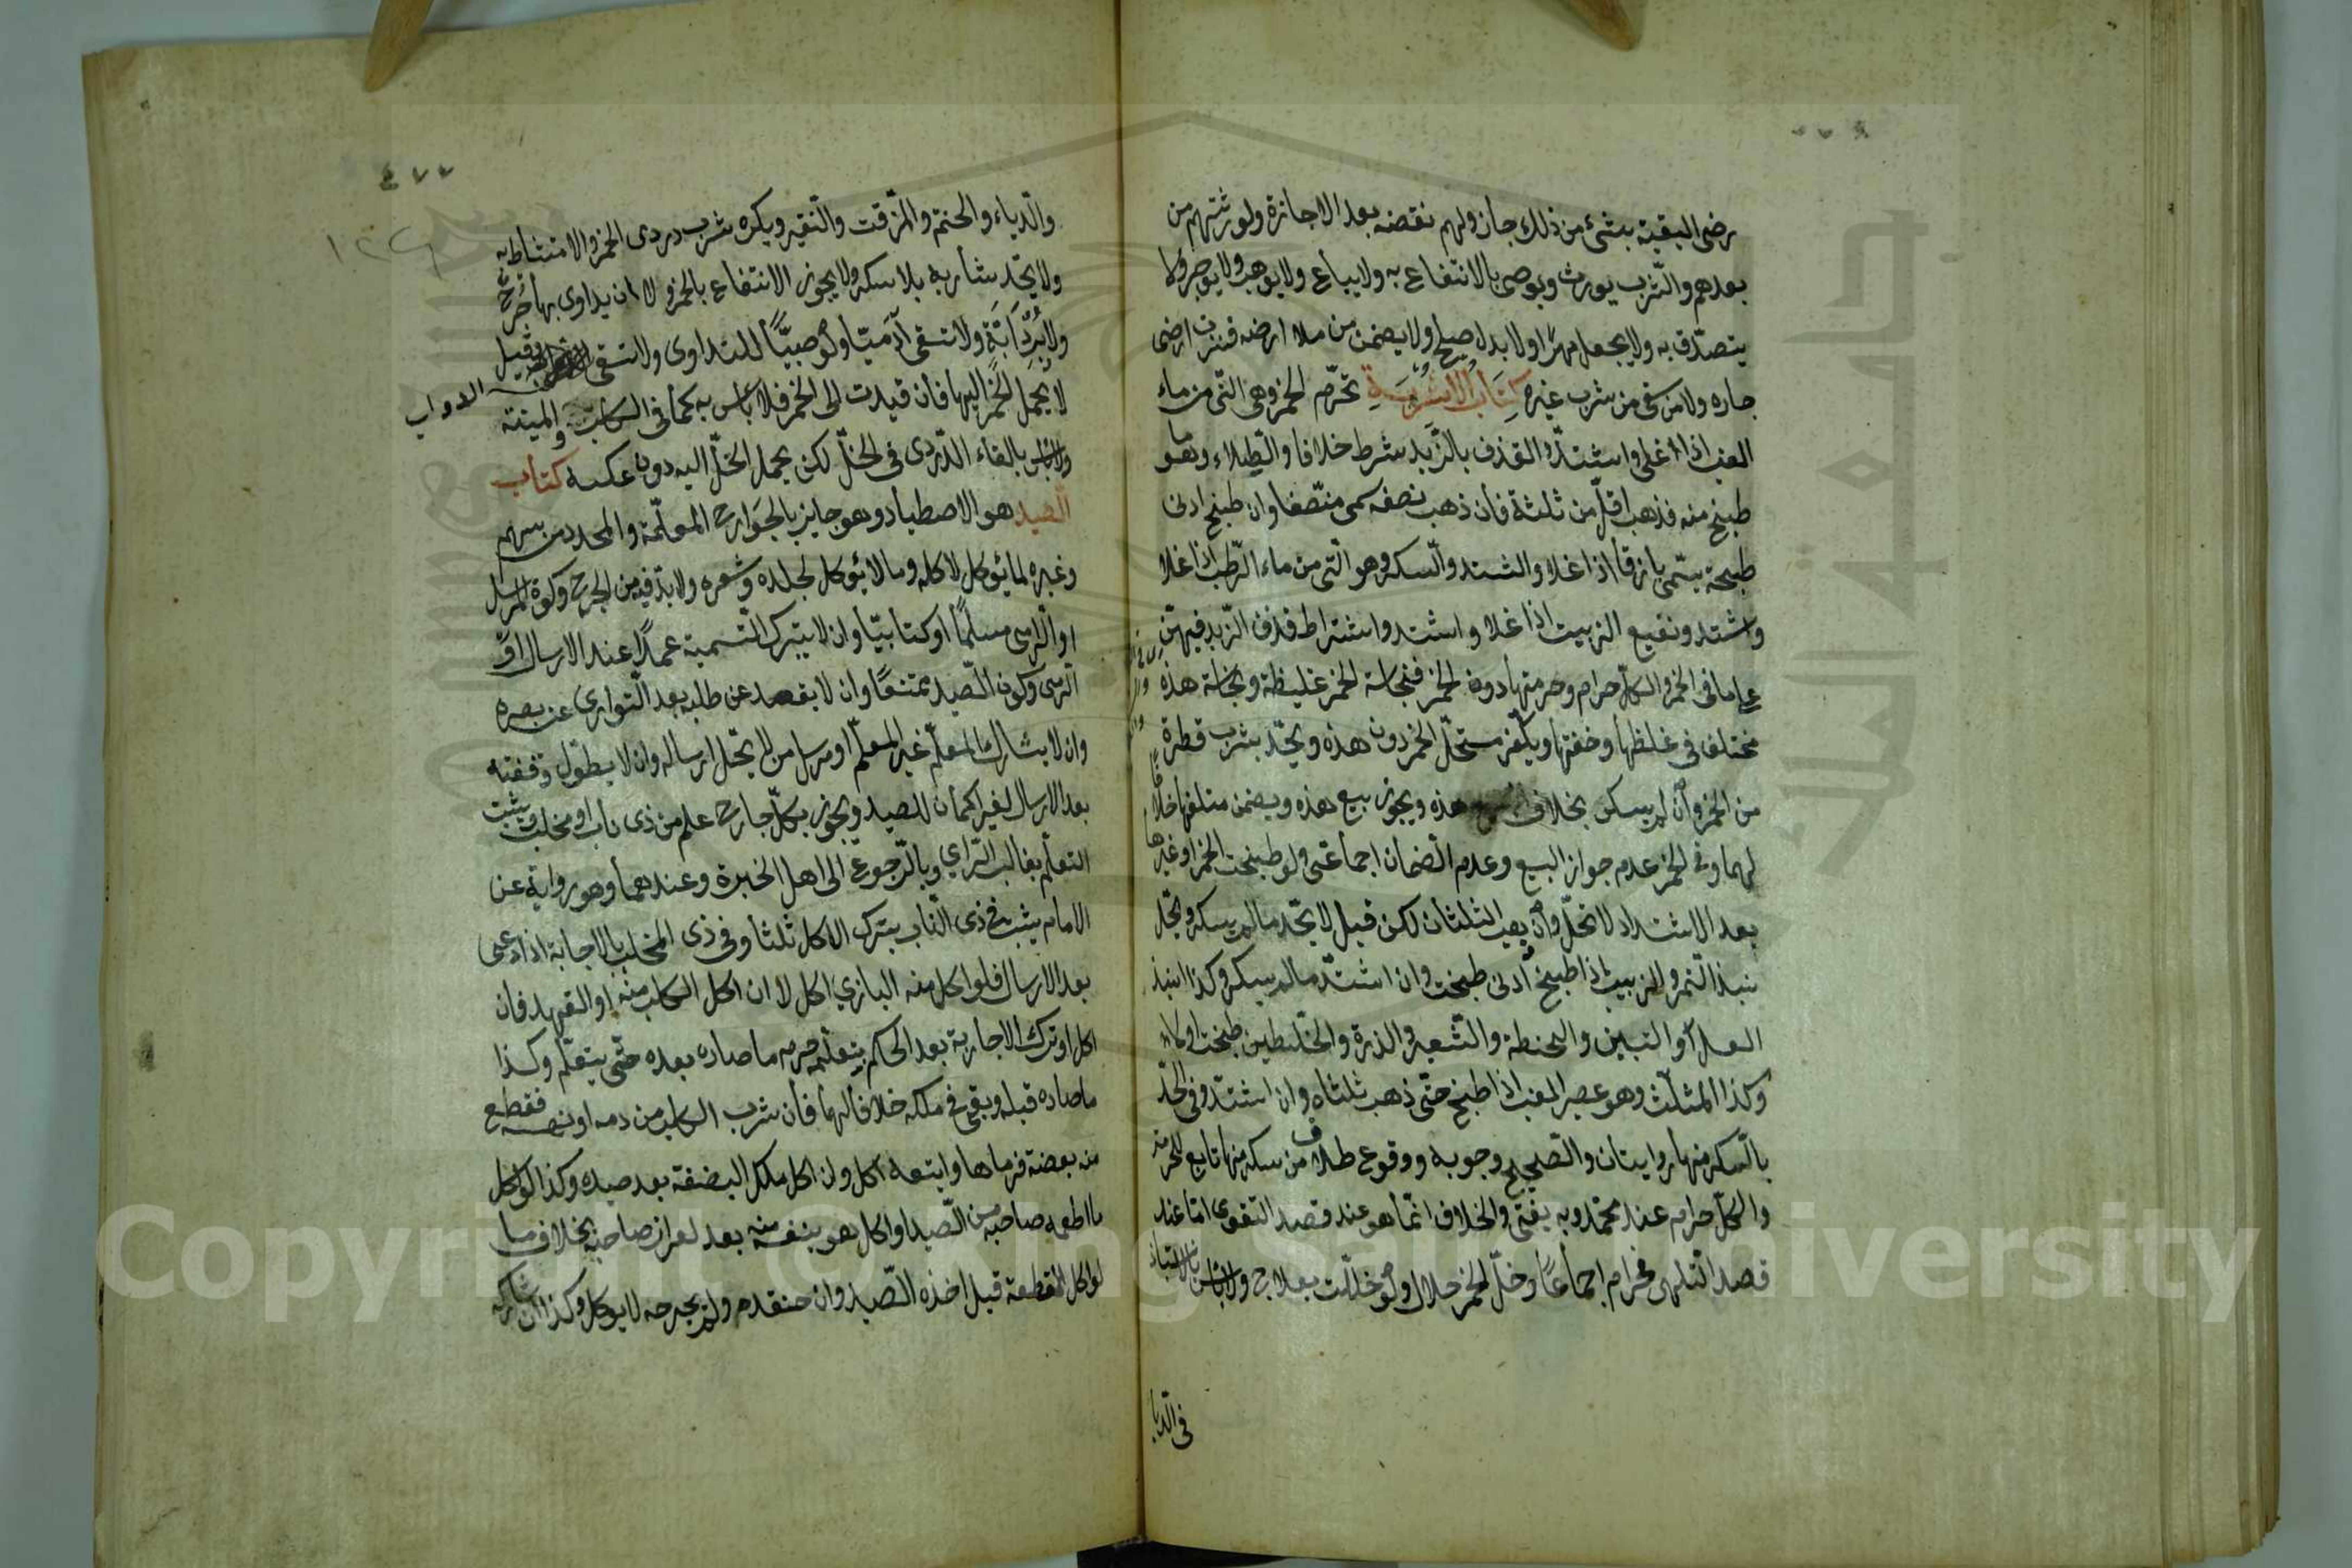 رضى البقية بشئ من ذلك جاز ولهم نقضه بعد الاجازة ولورثتهم من
بعدهم والشرب يورث ويوصى بالانتفاع به ولا يباع ولا يوهب ولا يوجر ولا
يتصدق به ولا يجعل مهرا ولا بدل صلح ولا يضمن من ملا ارضه فنزت ارض
جاره ولا من سقى من شرب غيره كتاب الاشربة تحرم الخمر وهى التى من ماء
العنب اذا غلى واشتد والقذف بالزبد شرط خلافا والطلاء وهو ما
طبخ منه فذهب اقل من ثلثة فان ذهب نصفه سمى منصفا وان طبخ ادنى
طبخة يسمى باذقا اذا غلا واشتد والسكر وهو التى من ماء الرطب اذا غلا
واشتد ونقيع الزبيب اذا غلا واشتد واشتراط قذف الزبد فيهن
على ما فى الخمر والكل حرام وحرمتها دون الخمر فنجاسة الخمر غليظة ونجاسة هذه
مختلف فى غلظها وخفتها ويكفر مستحل الخمر دون هذه ويحد بشرب قطرة
من الخمر وان لم يسكر بخلاف هذه ويجوز بيع هذه ويضمن متلفها خلافا
لهما وفى الخمر عدم جواز البيع وعدم الضمان اجماعى ولو طبخت الخمر او غيرها
بعد الاشتداد لا تحل وان ذهب الثلثان لكن قيل لا يحد ما لم يسكر ويحل
نبيذ التمر والزبيب اذا طبخ ادنى طبخة وان اشتد ما لم يسكر وكذا نبيذ
العسل والتين والحنطة والشعير والذرة والخليطين طبخت اولا
وكذا المثلث وهو عصير العنب اذا طبخ حتى ذهب ثلثاه وان اشتد وفى الحد
بالسكر منها روايتان والصحيح وجوبه ووقوع طلاق من سكر منها تابع للحرمة
والكل حرام عند محمد وبه يفتى والخلاف انما هو عند قصد التقوى اما عند
قصد التلهى فحرام اجماعا وخل الخمر حلال ولو خللت بعلاج ولا باس بالانتباذ
فى الدبا
٤٧٧
والدباء والحنتم والمزفت والنقير ويكره شرب دردى الخمر والامتشاط به
ولا يحد شاربه بلا سكر ولا يجوز الانتفاع بالخمر ولا ان يداوى بها جرح
ولا دبر دابة ولا تسقى آدميا ولو صبيا للتداوى ولا تسقى الدواب وقيل
لا يحمل الخمر اليها فان قيدت الى الخمر فلا باس به كما فى الكلب والميتة
ولا باس بالقاء الدردى فى الخل لكن يحمل الخل اليه دون عكسه كتاب
الصيد هو الاصطياد وهو جايز بالجوارح المعلمة والمحدد من سهم
وغيره لما يؤكل لاكله وما لا يؤكل لجلده وشعره ولا بد فيه من الجرح وكون المرسل
او الرامى مسلما او كتابيا وان لا يترك التسمية عمدا عند الارسال او
الرمى وكون الصيد ممتنعا وان لا يقعد عن طلبه بعد التوارى عن بصره
وان لا يشارك المعلم غير المعلم او مرسل من لا يحل ارساله وان لا يطول وقفته
بعد الارسال لغير اكمان للصيد ويجوز بكل جارح علم من ذى ناب او مخلب ويثبت
التعلم بغالب الراي وبالرجوع الى اهل الخبرة وعندهما وهو رواية عن
الامام يثبت فى ذى الناب بترك الاكل ثلثا وفى ذى المخلب بالاجابة اذا دعى
بعد الارسال فلو اكل منه البازي اكل لا ان اكل الكلب منه او الفهد فان
اكل او ترك الاجابة بعد الحكم بتعلمه حرم ما صاده بعده حتى يتعلم وكذا
ما صاده قبله وبقى فى ملكه خلافا لهما فان شرب الكلب من دمه او نهسه فقطع
منه بضعة فرماها واتبعه اكل وان اكل تلك البضعة بعد صيده وكذا لو اكل
ما اطعمه صاحبه من الصيد او اكل هو بنفسه منه بعد احراز صاحبه بخلاف ما
لو اكل القطعة قبل اخذه الصيد وان خنقه ولم يجرحه لا يوكل وكذا ان شاركه
Copyright © King Saud University